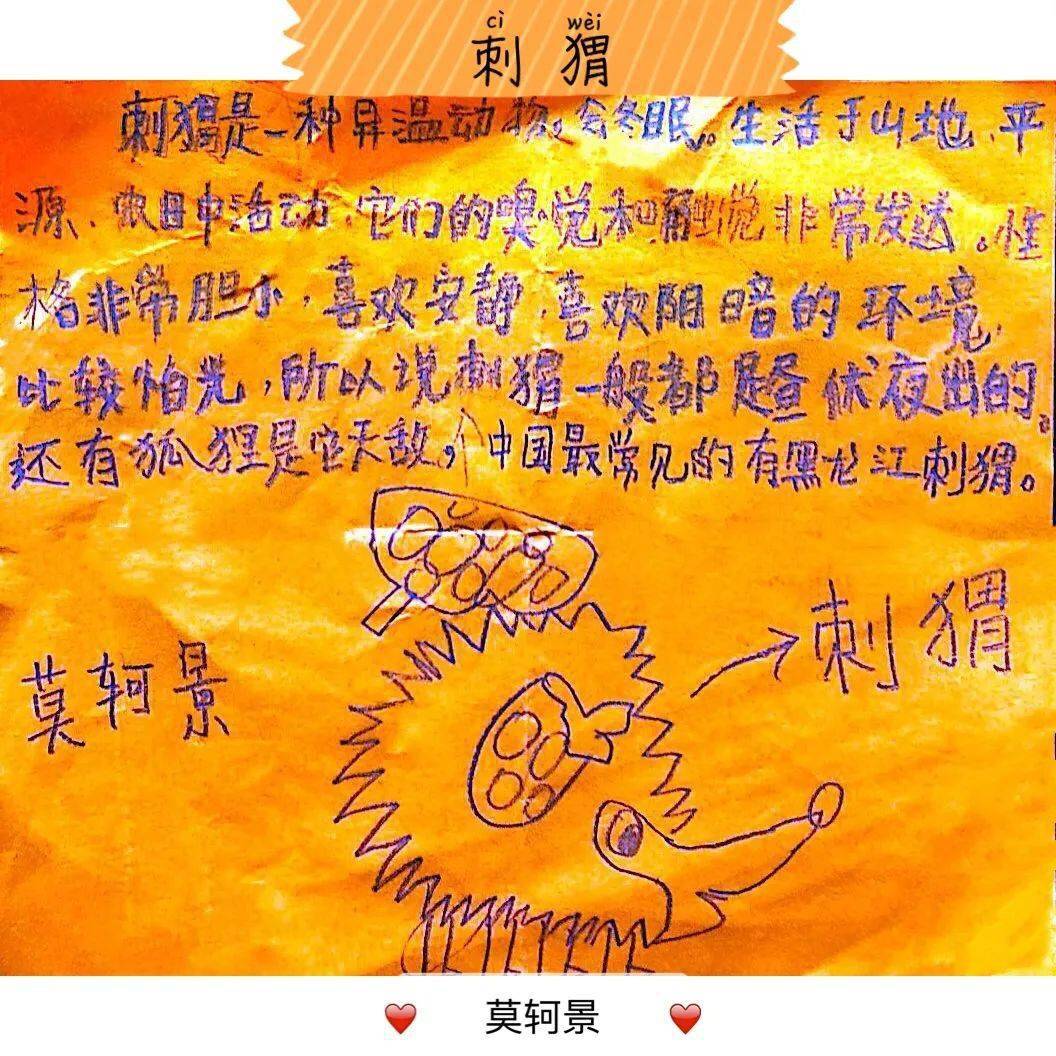 cì wèi
刺 猬
刺猬是一种异温动物,会冬眠。生活于山地、平
源、农田中活动、它们的嗅觉和触觉非常发达。性
格非常胆小,喜欢安静、喜欢阴暗的环境,
比较怕光,所以说刺猬一般都是昼伏夜出的。
还有狐狸是它天敌,个中国最常见的有黑龙江刺猬。
刺猬
莫轲景
莫轲景